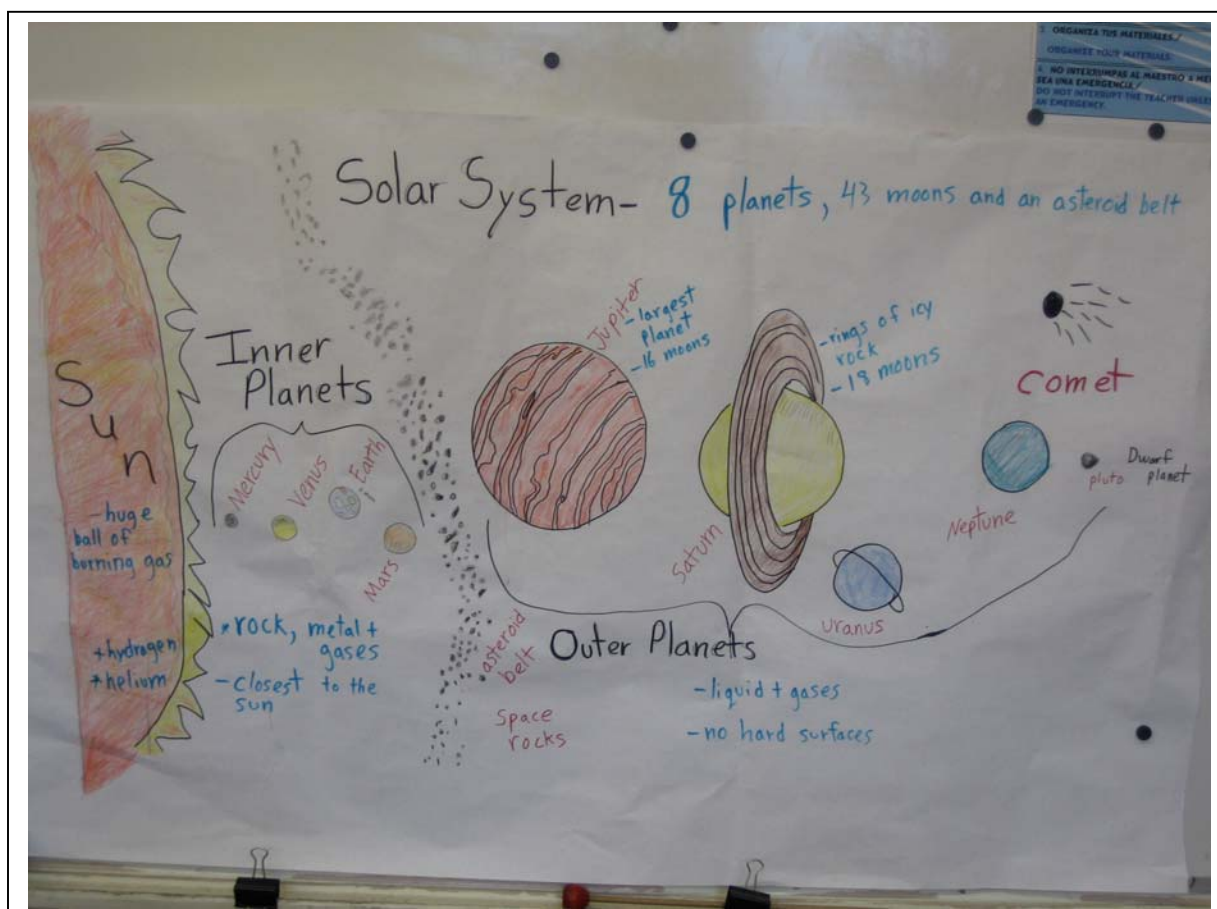 3. ORGANIZA TUS MATERIALES./
ORGANIZE YOUR MATERIALS.
4. NO INTERRUMPAS AL MAESTRO A
SEA UNA EMERGENCIA./
DO NOT INTERRUPT THE TEACHER
AN EMERGENCY.
Solar System- 8 planets, 43 moons and an asteroid belt
Sun
-huge
ball of
burning gas
*hydrogen
*helium
Inner
Planets
Mercury
Venus
Earth
Mars
*rock, metal +
gases
-closest to the
sun
asteroid
belt
Space
rocks
Jupiter
-largest
planet
-16 moons
Saturn
-rings of icy
rock
-18 moons
Uranus
Neptune
Comet
pluto
Dwarf
planet
Outer Planets
-liquid + gases
-no hard surfaces